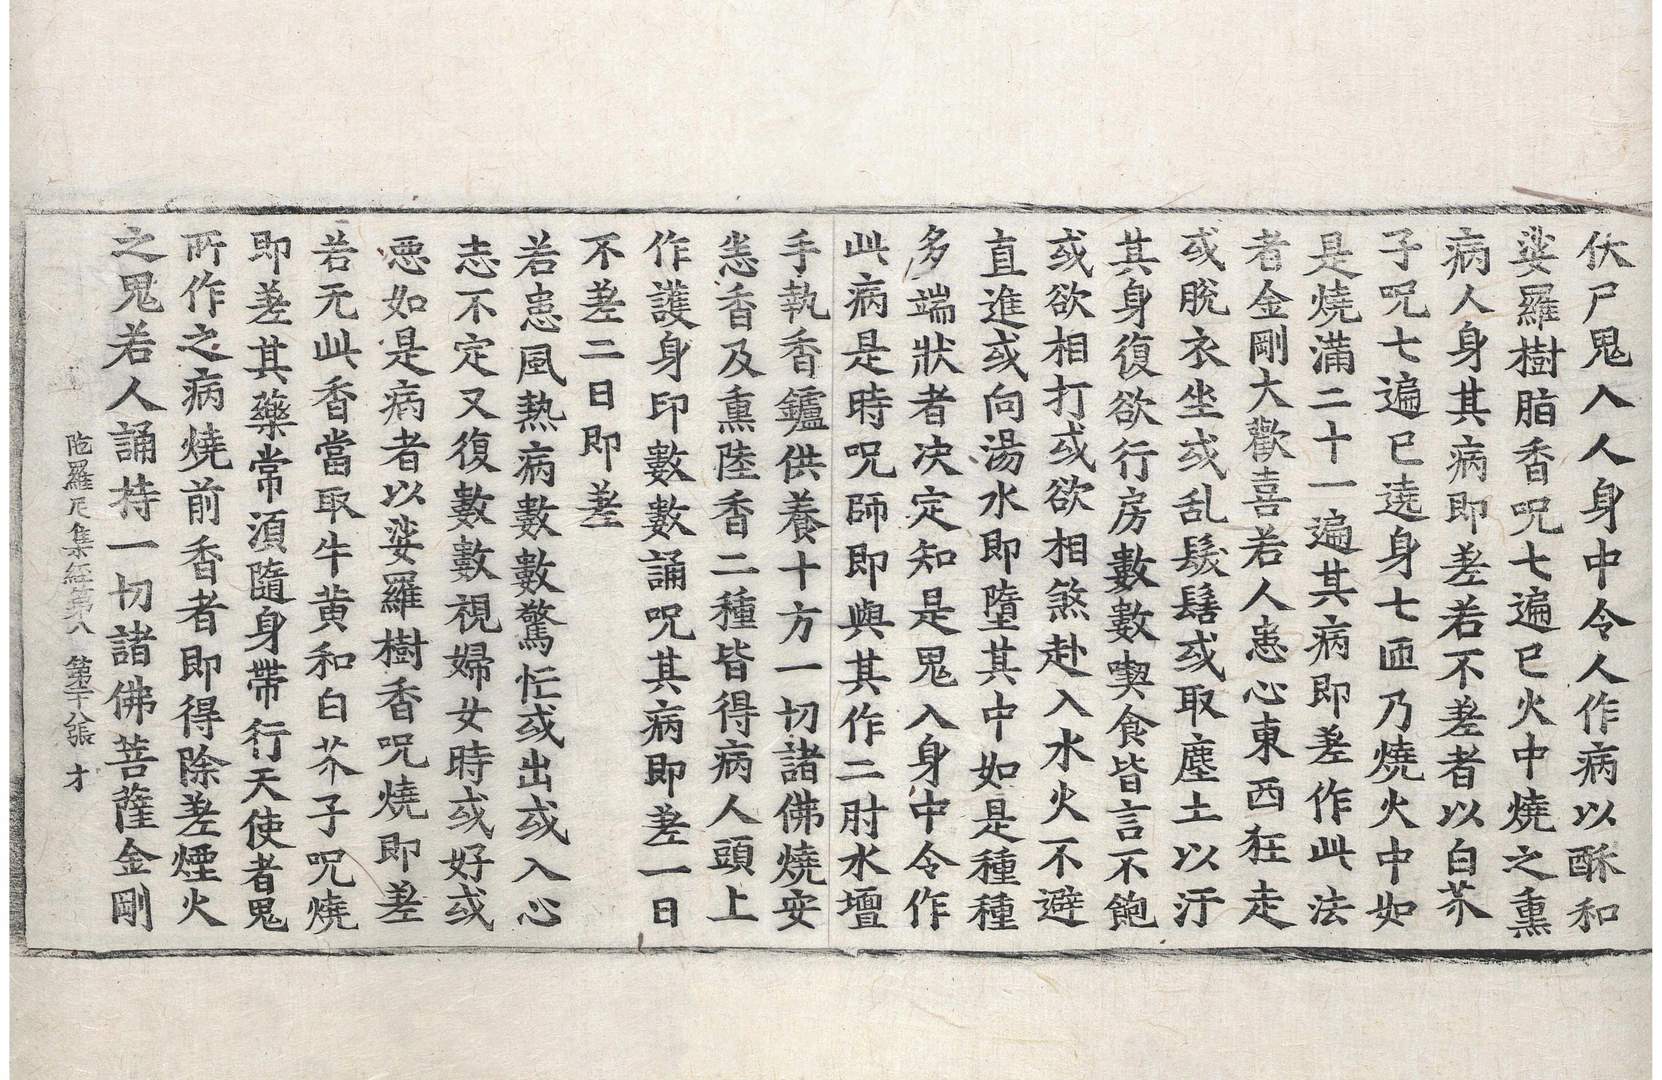 伏尸鬼入人身中令人作病以酥和
娑羅樹脂香呪七遍已火中燒之熏
病人身其病即差若不差者以白芥
子呪七遍已遶身七匝乃燒火中如
是燒滿二十一遍其病即差作此法
者金剛大歡喜若人患心東西狂走
或脫衣坐或乱髮髻或取塵土以汙
其身復欲行房數數喫食皆言不飽
或欲相打或欲相煞赴入水火不避
直進或向湯水即墮其中如是種種
多端狀者決定知是鬼入身中令作
此病是時呪師即與其作二肘水壇
手執香鑪供養十方一切諸佛燒安
悉香及熏陸香二種皆得病人頭上
作護身印數數誦呪其病即差一日
不差二日即差
若患風熱病數數驚忙或出或入心
志不定又復數數視婦女時或好或
惡如是病者以娑羅樹香呪燒即差
若无此香當取牛黄和白芥子呪燒
即差其藥常須隨身帶行天使者鬼
所作之病燒前香者即得除差煙火
之鬼若人誦持一切諸佛菩薩金剛
陁羅尼集經第八 第二十八張 才